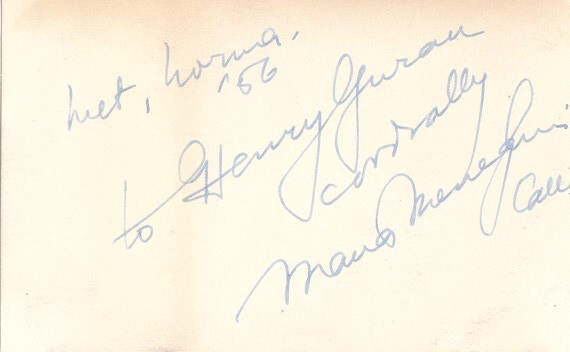 Met, Norma.
'56
to Henry Guran
cordially
Maria Meneghini
Call